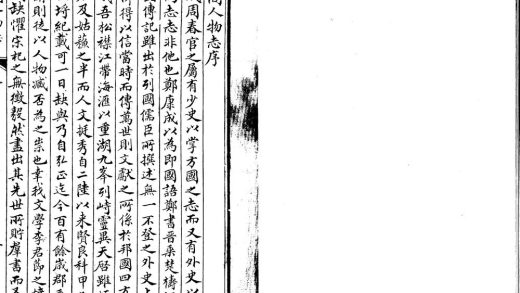 間人物志序
周春官之屬有少史以掌方國之志而又有外史以
志志非他也鄭康成以為即國語鄭書晉乗楚檮
傳記雖出於列國儒臣所撰述無一不登之外史
得以信當時而傳萬世則文獻之所係於邦國四方
吾松襟江帶海滙以重湖九峯列峙靈異天啓雖
及姑蘓之半而人文挺秀自二陸以來賢良科甲
埒紀載可一日缺與乃自弘正迄今百有餘歲郡
則徒以人物臧否為之祟也幸我文學李君節之
缺懼宗祀之無徵毅然盡出其先世所貯羣書而又